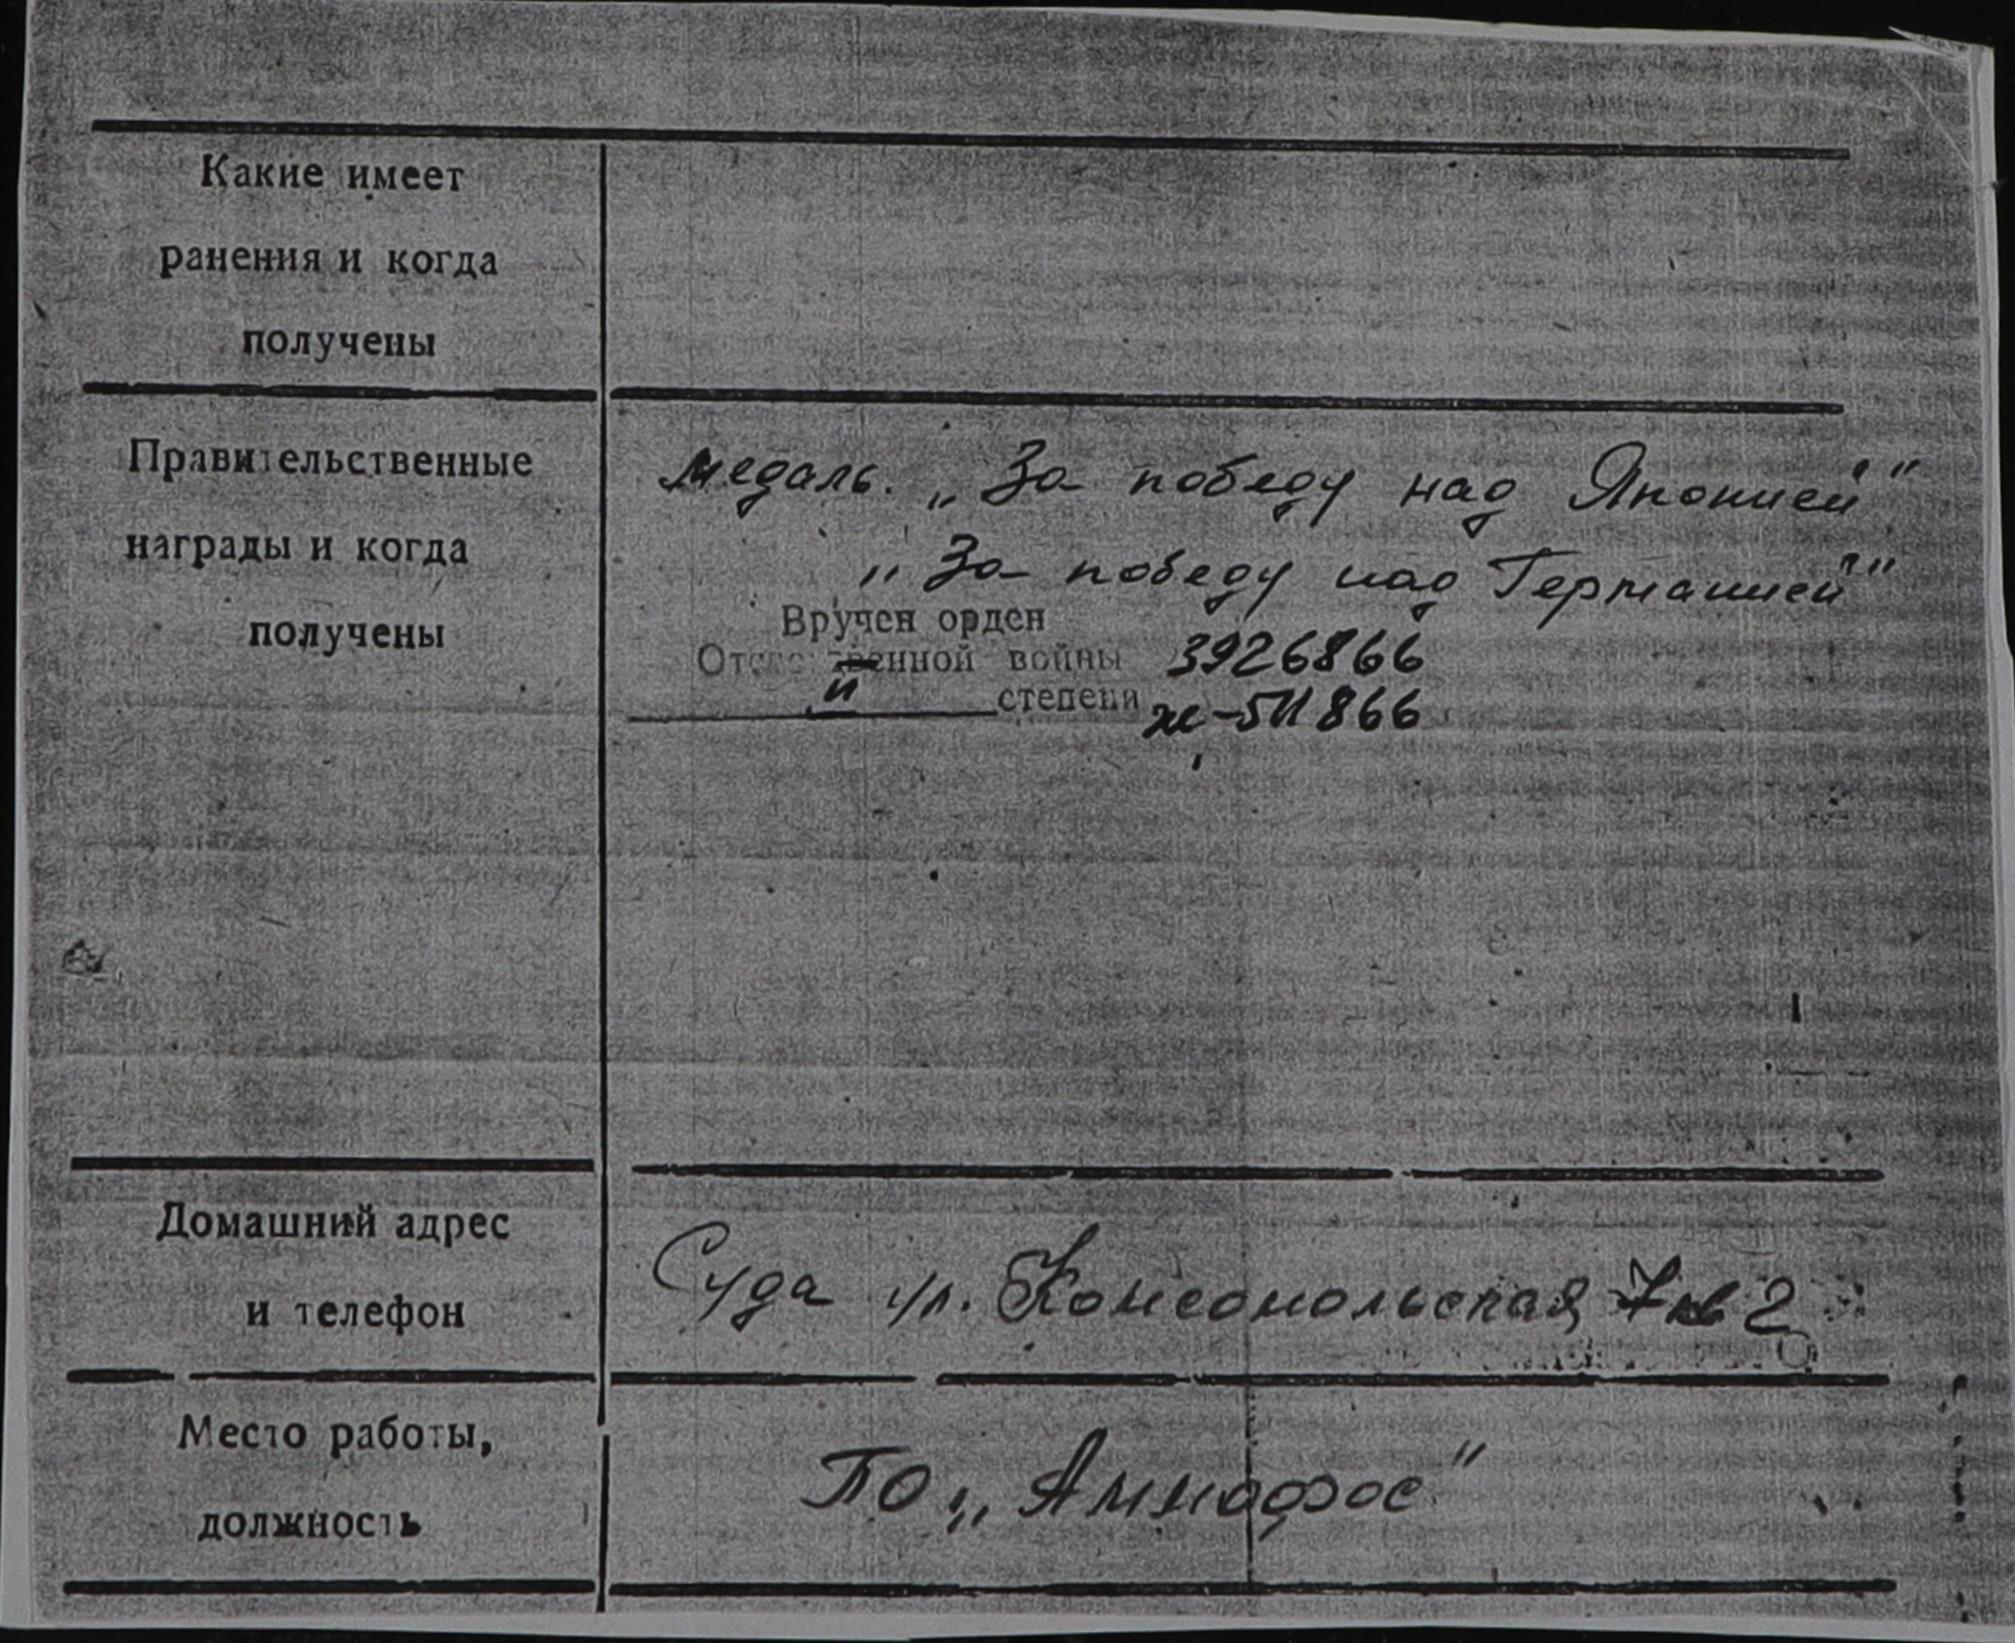 Какие имеет
ранения и когда
получены
Правительственные
награды и когда
получены
медаль. „За победу над Японией"
„За победу над Германией"
Вручен орден
Отечественной войны 3926866
II степени ж-511866
Домашний адрес
и телефон
Суда ул. Комсомольская 7 кв 2
Место работы,
должность
ПО „Аммофос"